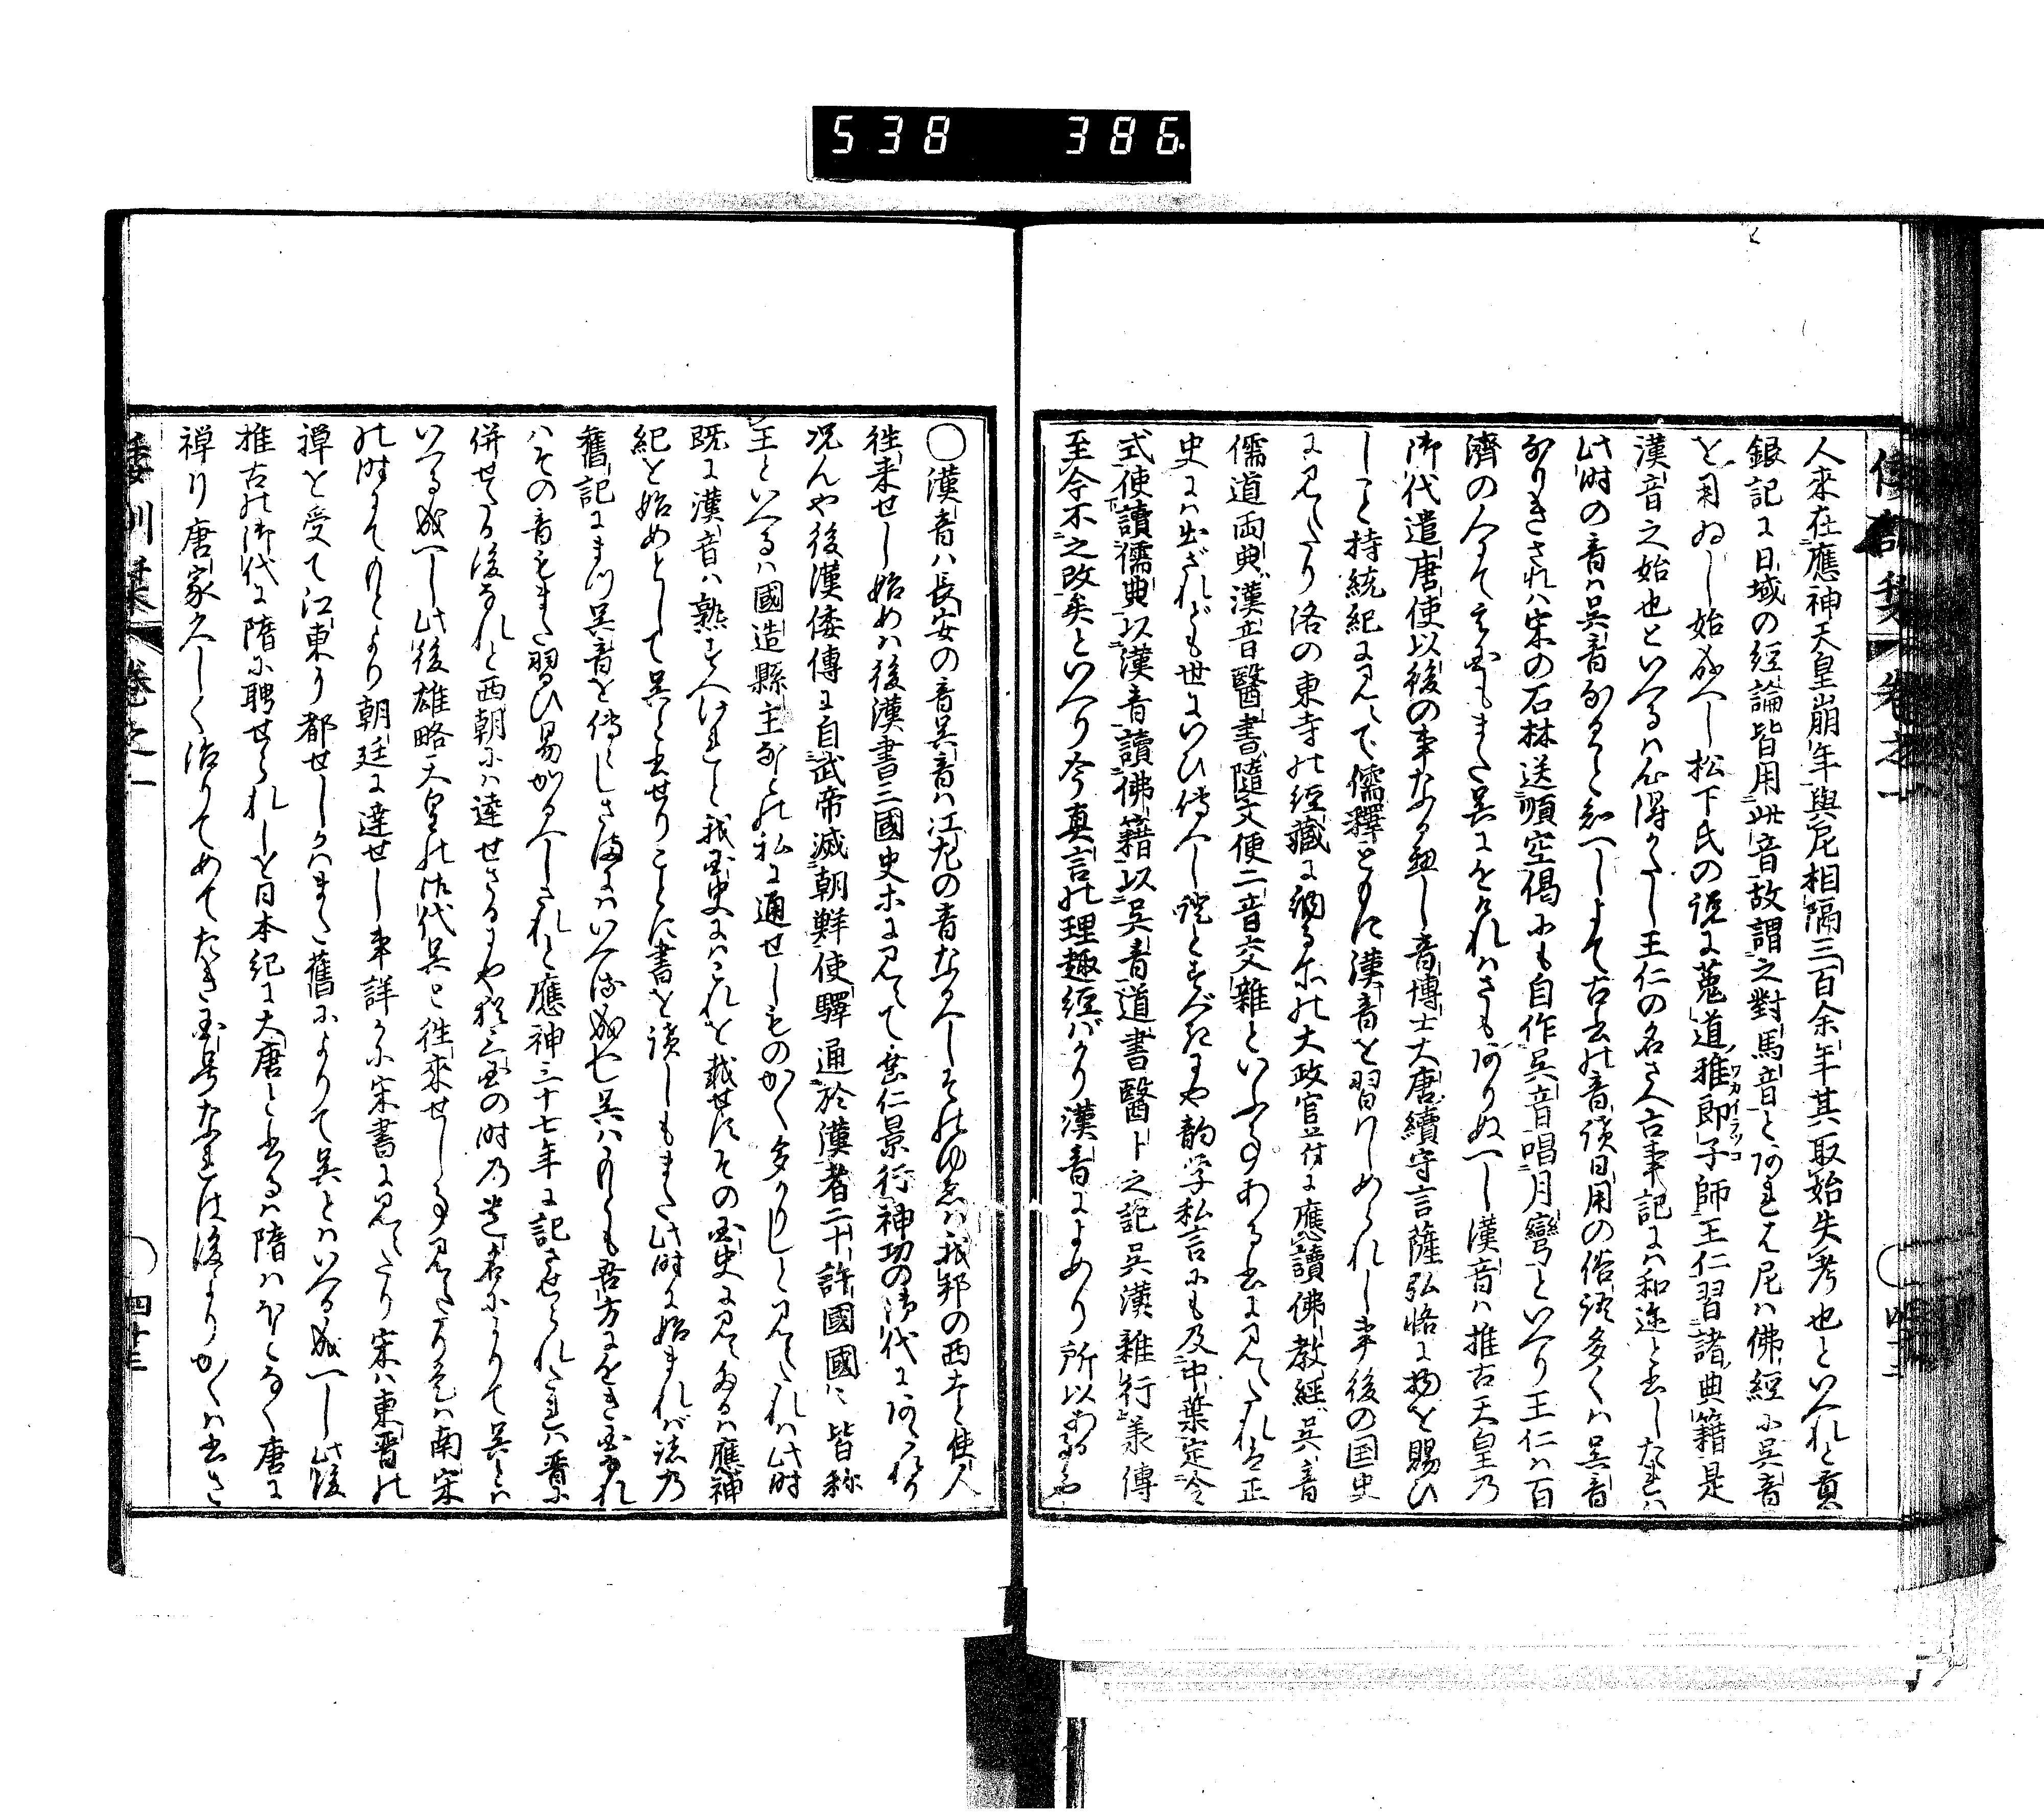 538 386
人来在應神天皇崩年與尼相隔三百余年其取始失考也といへれと真
銀記に日域の經論皆用此音故謂之對馬音とあれは尼ハ佛經に吳音
を用ゐし始成へし松下氏の説に菟道雅郎子師王仁習諸典籍是
ワカイラツコ
漢音之始也といへるハ心得かたし王仁の名さへ古事記にハ和迩と書したれハ
此時の音ハ吳音なること知へしよて古書の音讀日用の俗語多くハ吳音
なりきされハ宋の石林送順空偈にも自作吳音唱月彎といへり王仁ハ百
濟の人にて
もまた吳に
れハさもありぬへし漢音ハ推古天皇乃
御代遣唐使以後の事なるへし音博士大唐續守言薩弘恪に物を賜ひ
しこと持統紀に見えて儒釋ともに漢音を習ハしめられし事後の国史
に見えたり洛の東寺の經藏に納る所の大政官並付に應讀佛教經吳音
儒道両典漢音醫書隨文便二音交雜といふ事ある書に見えたれ共正
史にハ出ざれども世にいひ傳へし說とすべきにや韵学私言にも及中葉定令
式使讀儒典以漢音讀佛籍以吳音道書醫卜之記吳漢雜行羕傳
至今不之改矣といへり今真言の理趣經ばかり漢音によめり所以ある
○漢音ハ長安の音吳音ハ江左の音なるへしそのゆゑハ我邦の西土と使人
徃来せし始めハ後漢書三國史ホに見えて垂仁景行神功の御代にあたれり
况んや後漢倭傳に自武帝滅朝鮮使驛通於漢者三十許國國皆称
王といへるハ國造縣主などの私に通せしものかく多かりしと見えたれハ此時
既に漢音ハ熟すへけれと我国史にハこれを載せすその国史に見えたるハ應神
紀を始めとして吳と書せりことに書を讀しもまた此時に始まれば諸乃
舊記にまつ吳音を傳へしさまにハいへる成へし吳ハもとも吾方にちかき国なれ
ハその音もまた習ひ易かるへしされと應神三十七年に記させられたるハ晉に
併せたる後なれと西朝にハ達せさるにや猶三国の時乃遺名によりて吳とハ
いへる成へし此後雄略天皇の御代吳と徃来せし事見えたり是ハ南宋
の時にてもとより朝廷に達せし事詳かに宋書に見えたり宋ハ東晉の
禅を受て江東に都せしかハまた舊によりて吳とハいへる成へし此後
推古の御代に隋に聘せられしを日本紀に大唐と書るハ隋ハほとなく唐に
禅り唐家久しく治りてめてたき国号なれは後よりかくハ書さ
倭訓栞 卷之一